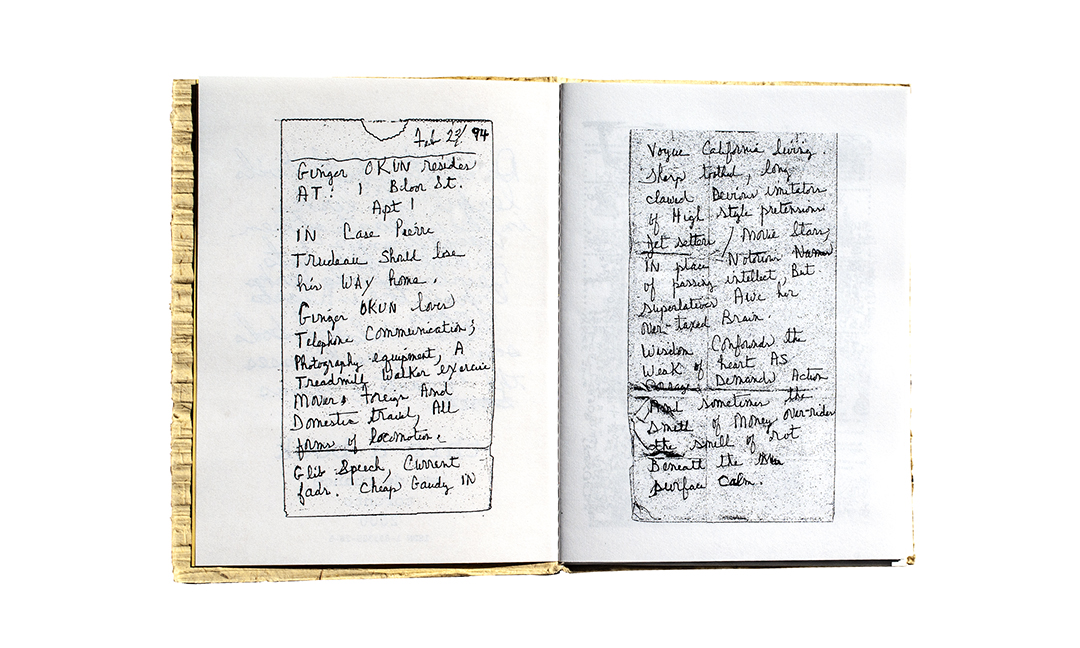 Feb 23/94
Ginger OKUN resides
AT: 1 Bloor St.
Apt 1
IN Case Pierre
Trudeau Should lose
his WAY home.
Ginger OKUN loves
Telephone Communication;
Photography equipment, A
Treadmill Walker exercise
Mover & Foreign And
Domestic travel, All
forms of locomotion.
Glib Speech, Current
fads. Cheap Gaudy IN
Vogue California living.
Sharp toothed, long
clawed Devious imitators
of High Style pretensions
Jet setters / Movie Stars,
IN place Notorious Names
of passing intellect, But
Superlatives Awe her
over-taxed Brain.
Wisdom Confounds the
Weak of heart AS
Demands Action
And sometimes the
Smell of Money over-rides
the smell of rot
Beneath the
surface calm.